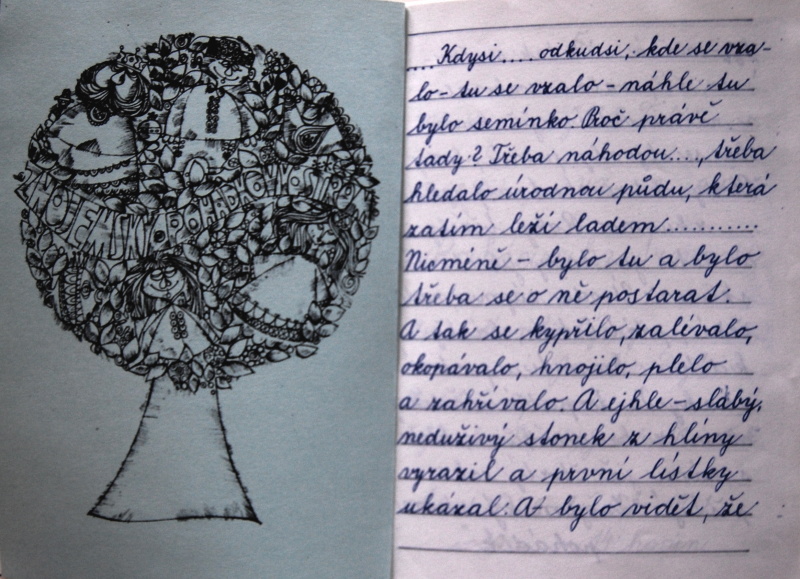 ZNOJEMSKÝ POHÁDKOVÝ STROM
....Kdysi.... odkudsi, kde se vza-
lo - tu se vzalo - náhle tu
bylo semínko. Proč právě
tady? Třeba náhodou...., třeba
hledalo úrodnou půdu, která
zatím leží ladem...........
Nicméně - bylo tu a bylo
třeba se o ně postarat.
A tak se kypřilo, zalévalo,
okopávalo, hnojilo, plelo
a zahřívalo. A ejhle - slabý,
neduživý stonek z hlíny
vyrazil a první lístky
ukázal. A bylo vidět, že